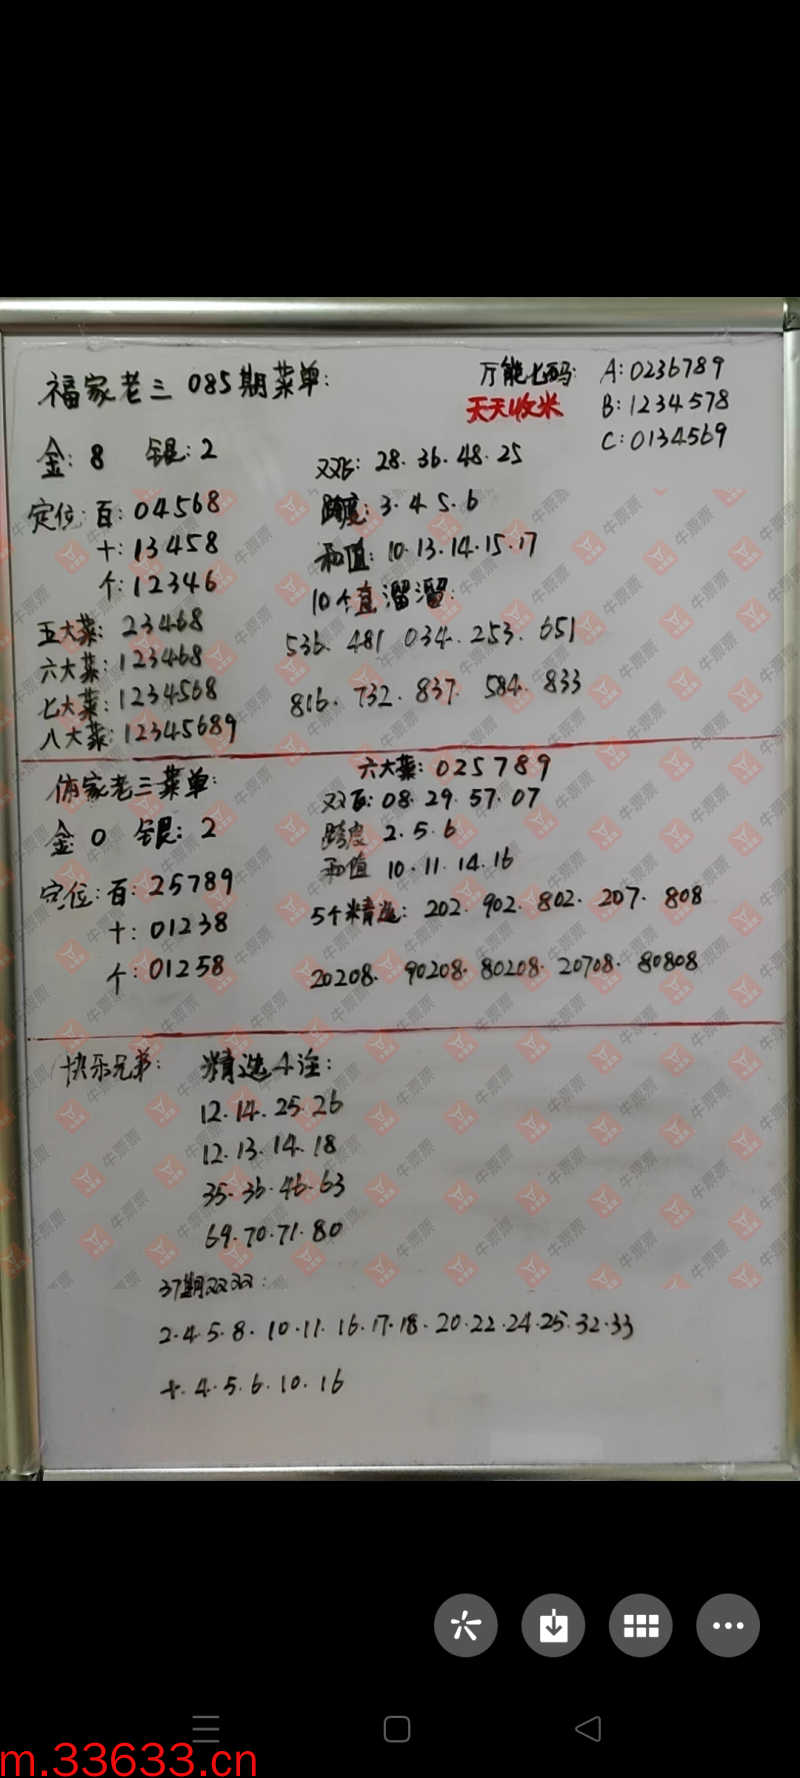 福家老三 085期菜单:
万能七码: A:0236789
天天收米 B:1234578
C:0134569
金: 8 银: 2
双飞: 28. 36. 48. 25
定位: 百: 04568
跨度: 3. 4. 5. 6
十: 13458
和值: 10. 13. 14. 15. 17
个: 12346
10个直溜溜:
五大菜: 23468
536. 481 034. 253. 651
六大菜: 123468
七大菜: 1234568
816. 732. 837. 584. 833
八大菜: 12345689
体家老三菜单:
六大菜: 025789
双飞: 08. 29. 57. 07
金: 0 银: 2
跨度 2. 5. 6
和值 10. 11. 14. 16
定位: 百: 25789
5个精选: 202. 902. 802. 207. 808
十: 01238
个: 01258
20208. 90208. 80208. 20708. 80808
快乐兄弟: 精选4注:
12. 14. 25. 26
12. 13. 14. 18
35. 36. 46. 63
69. 70. 71. 80
37期双双:
2. 4. 5. 8. 10. 11. 16. 17. 18. 20. 22. 24. 25. 32. 33
+. 4. 5. 6. 10. 16
牛票票
m.33633.cn